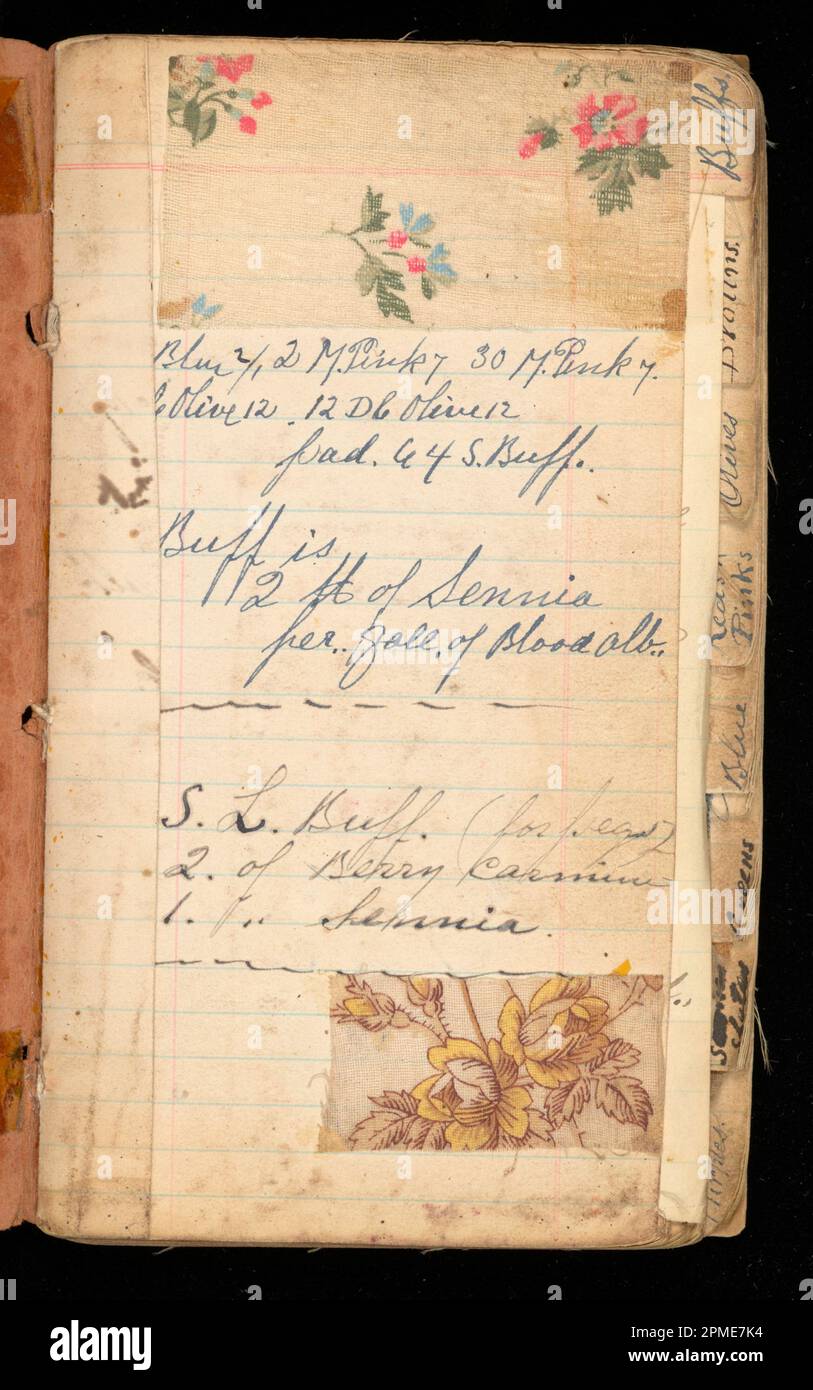 Buffs.
Blue 2/1 2 M.Pink 7 30 M.Pink 7.
Olive 12 . 12 Db Olive 12
pad. 64 S. Buff..
Buff is
2 lb of Sennia
per.. Gall. of Blood alb..
S. L. Buff. (for
2. of Berry Carmine
1. " Sennia.
Browns.
Olives
Pinks
Blue
Greens
a
alamy
Image ID: 2PME7K4
www.alamy.com